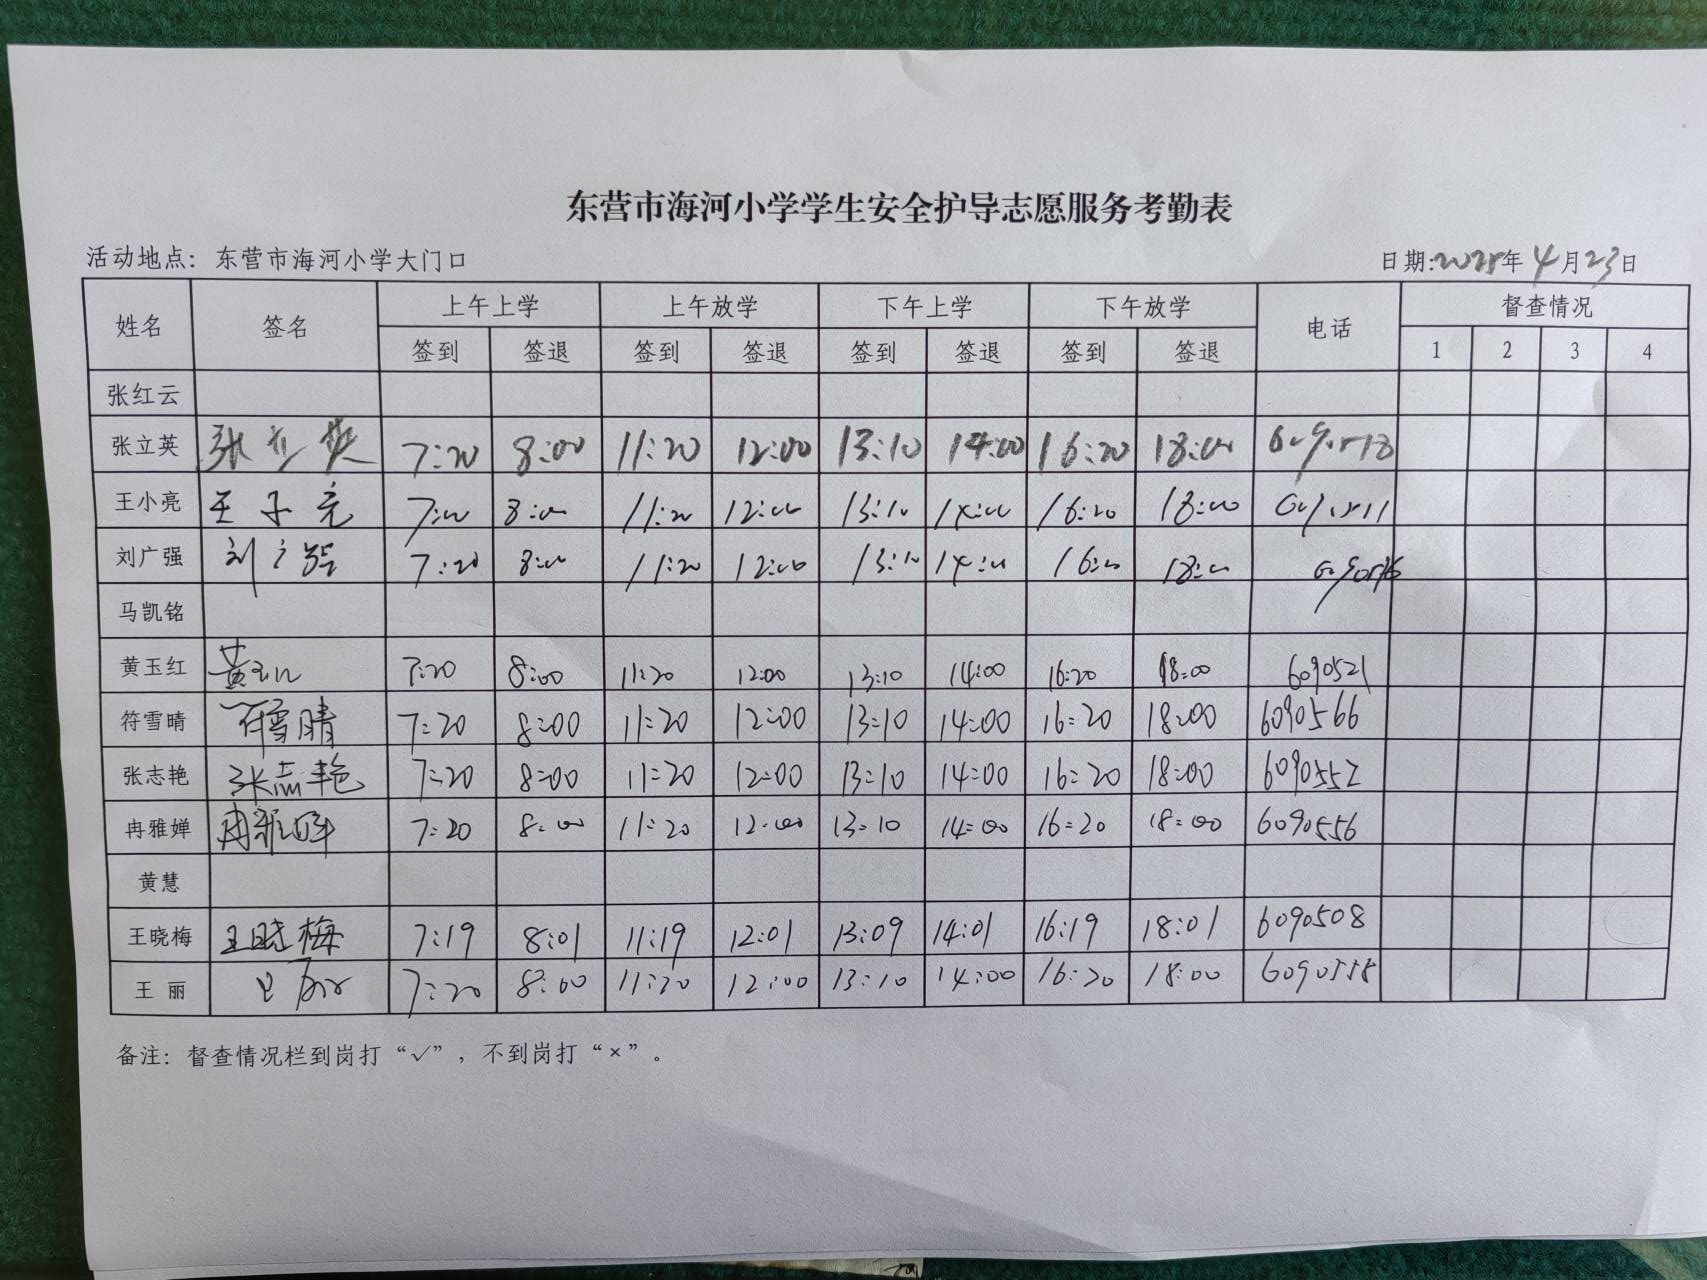 东营市海河小学学生安全护导志愿服务考勤表
活动地点：东营市海河小学大门口 日期:2025年4月23日
姓名 签名 上午上学 上午放学 下午上学 下午放学 电话 督查情况
签到 签退 签到 签退 签到 签退 签到 签退 1 2 3 4
张红云
张立英 张立英 7:20 8:00 11:20 12:00 13:10 14:00 16:20 18:00 6090518
王小亮 7:20 8:00 11:20 12:00 13:10 14:00 16:20 18:00 6090511
刘广强 刘广强 7:20 8:00 11:20 12:00 13:10 14:00 16:20 18:00
马凯铭
黄玉红 黄玉红 7:20 8:00 11:20 12:00 13:10 14:00 16:20 18:00 6090521
符雪晴 符雪晴 7:20 8:00 11:20 12:00 13:10 14:00 16:20 18:00 6090566
张志艳 张志艳 7:20 8:00 11:20 12:00 13:10 14:00 16:20 18:00 6090552
冉雅婵 冉雅婵 7:20 8:00 11:20 12:00 13:10 14:00 16:20 18:00 6090556
黄慧
王晓梅 王晓梅 7:19 8:01 11:19 12:01 13:09 14:01 16:19 18:01 6090508
王丽 王丽 7:20 8:00 11:20 12:00 13:10 14:00 16:20 18:00 6090558
备注：督查情况栏到岗打“√”，不到岗打“×”。